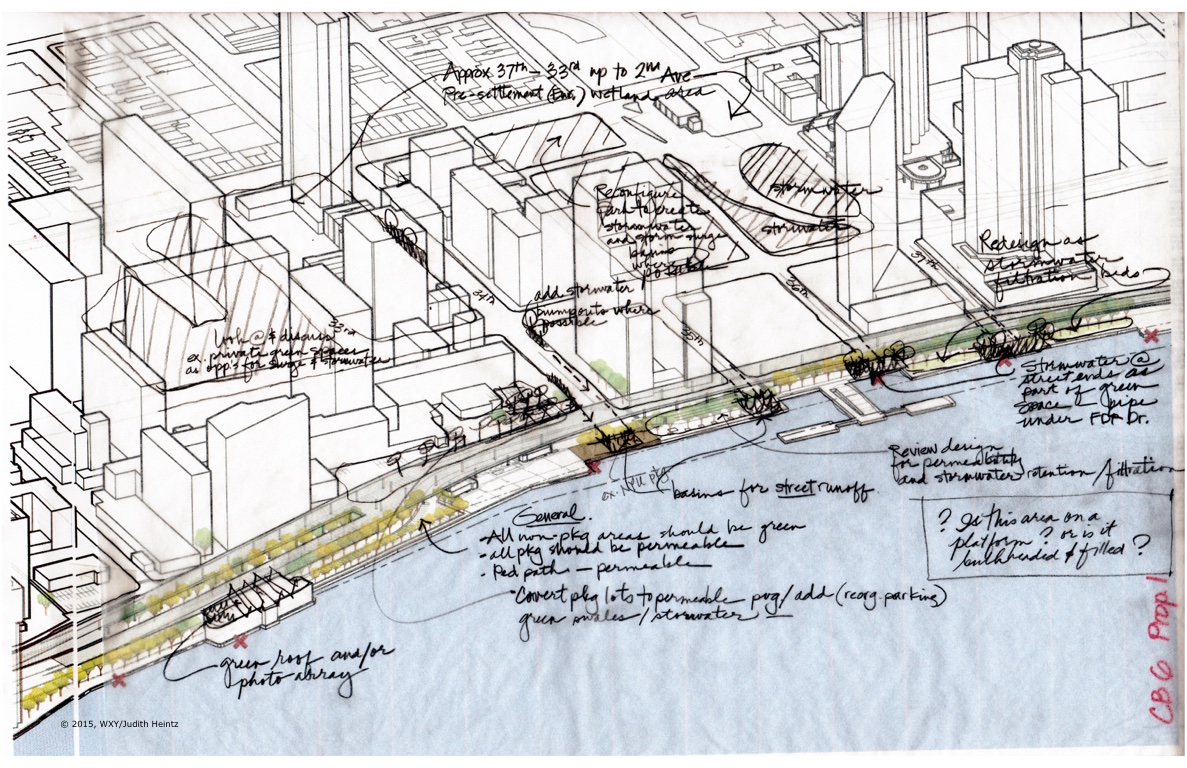 Approx 37th - 33rd up to 2nd Ave
Pre-settlement (Eng.) Wetlands area
Reconfigure
park to create
stormwater
and storm surge
basins
where
possible
stormwater
stormwater
37th
Redesign as
stormwater
filtration beds
34th
36th
35th
33rd
add stormwater
bumpouts where
possible
look @ & discuss
ex. private green spaces
as opp's for surge & stormwater
Stormwater @
street ends as
part of green
space — pipe
under FDR Dr.
Review design
for permeability
and stormwater retention / filtration
ex. NYU pkg
basins for street runoff
General
- All non-pkg areas should be green
- all pkg should be permeable
- Ped paths — permeable
- Covert pkg lots to permeable pvg / add (reorg. parking)
green swales / stormwater
? Is this area on a
platform? or is it
bulkheaded & filled?
green roof and/or
photo array
CB 6 Prop 1
© 2015, WXY/Judith Heintz